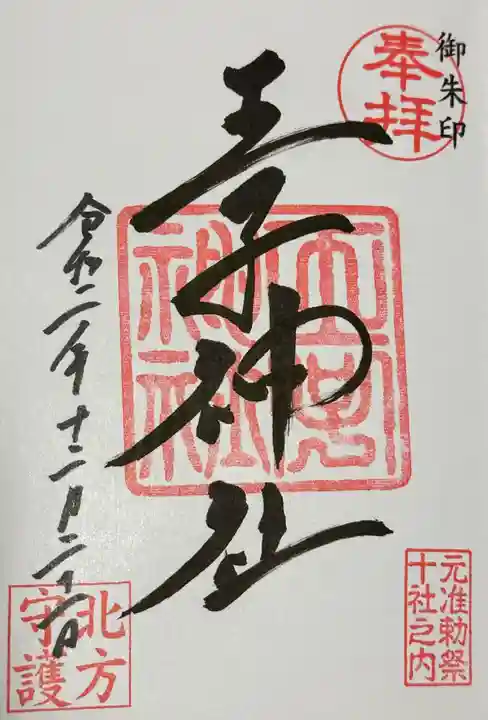 御朱印
奉拝
王子神社
王子
神社
元准勅祭
十社之内
令和二年十二月
北方
守護